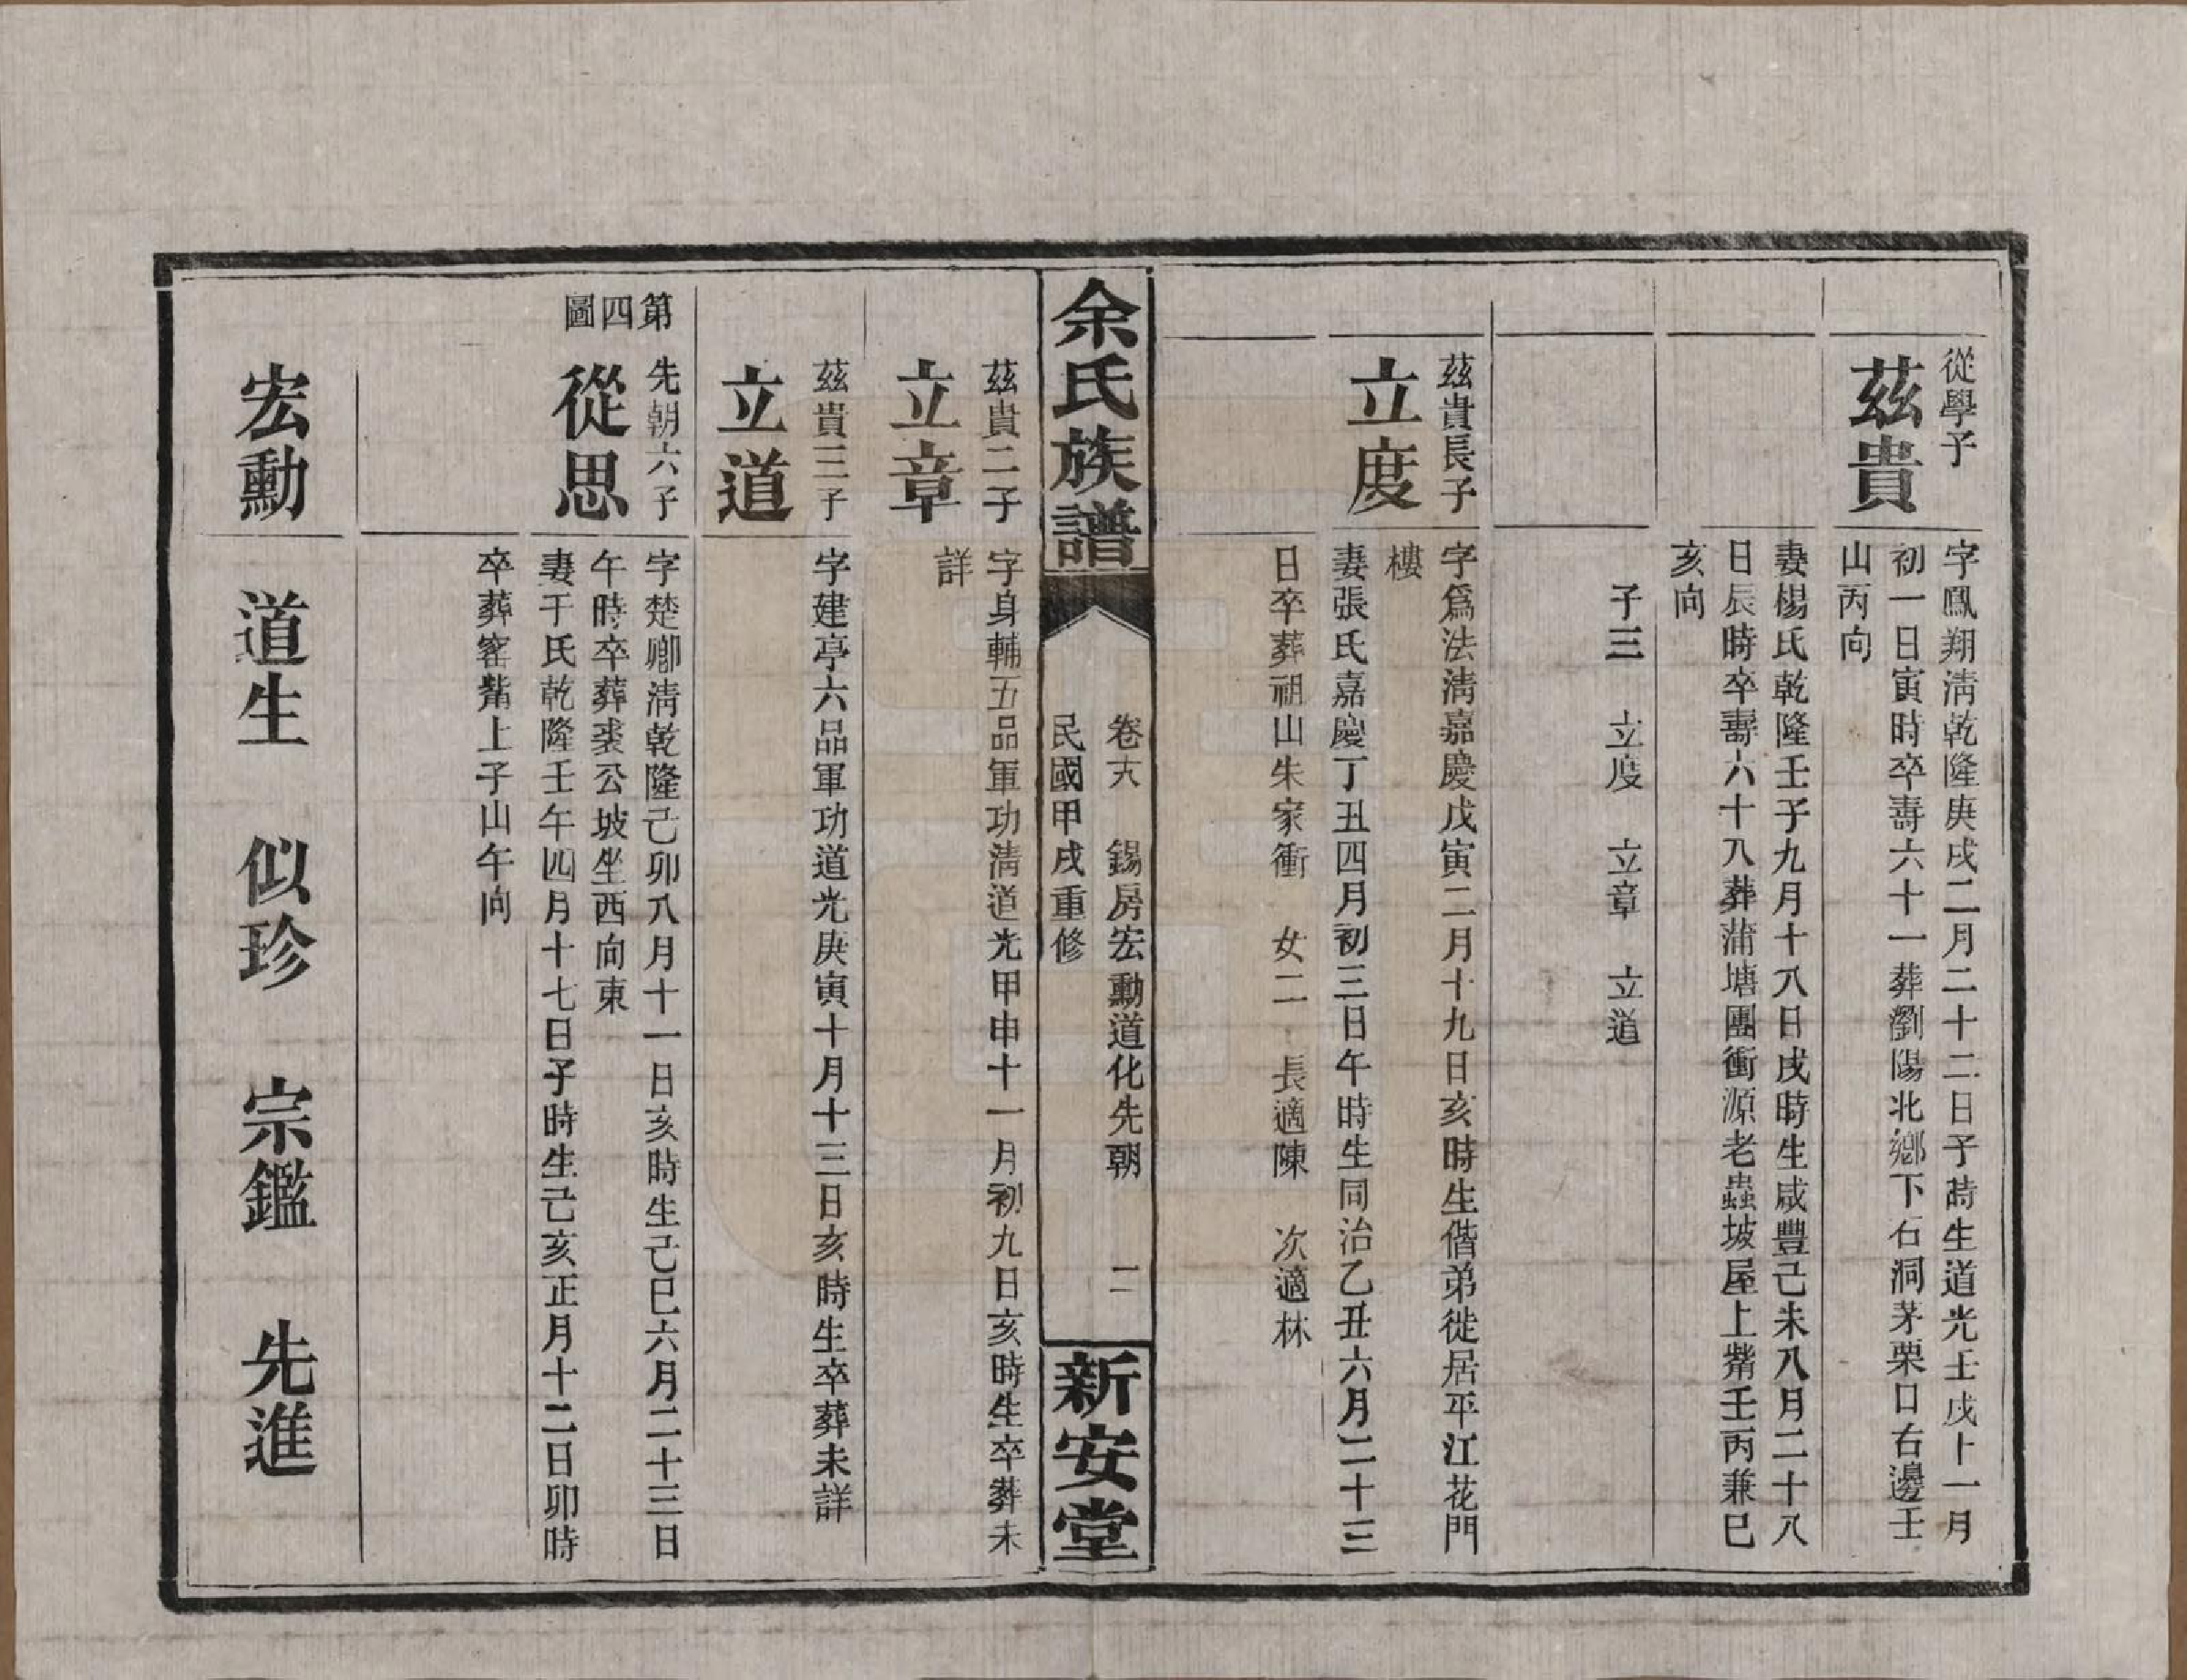 從學子
茲貴
字鳳翔淸乾隆庚戌二月二十二日子時生道光壬戌十一月
初一日寅時卒壽六十一葬瀏陽北鄉下石洞茅栗口右邊壬
山丙向
妻楊氏乾隆壬子九月十八日戌時生咸豐己未八月二十八
日辰時卒壽六十八葬蒲塘團衝源老蟲坡屋上觜壬丙兼巳
亥向
子三 立度 立章 立道
茲貴長子
立度
字爲法淸嘉慶戊寅二月十九日亥時生偕弟徙居平江花門
樓
妻張氏嘉慶丁丑四月初三日午時生同治乙丑六月二十三
日卒葬祖山朱家衝 女二 長適陳 次適林
余氏族譜
卷六 錫房宏勳道化先朝 二
民國甲戌重修
新安堂
茲貴二子
立章
字身輔五品軍功淸道光甲申十一月初九日亥時生卒葬未
詳
茲貴三子
立道
字建亭六品軍功道光庚寅十月十三日亥時生卒葬未詳
第四圖
先朝六子
從思
字楚卿淸乾隆己卯八月十一日亥時生己巳六月二十三日
午時卒葬裘公坡坐西向東
妻干氏乾隆壬午四月十七日子時生己亥正月十二日卯時
卒葬窰觜上子山午向
宏勳 道生 似珍 宗鑑 先進